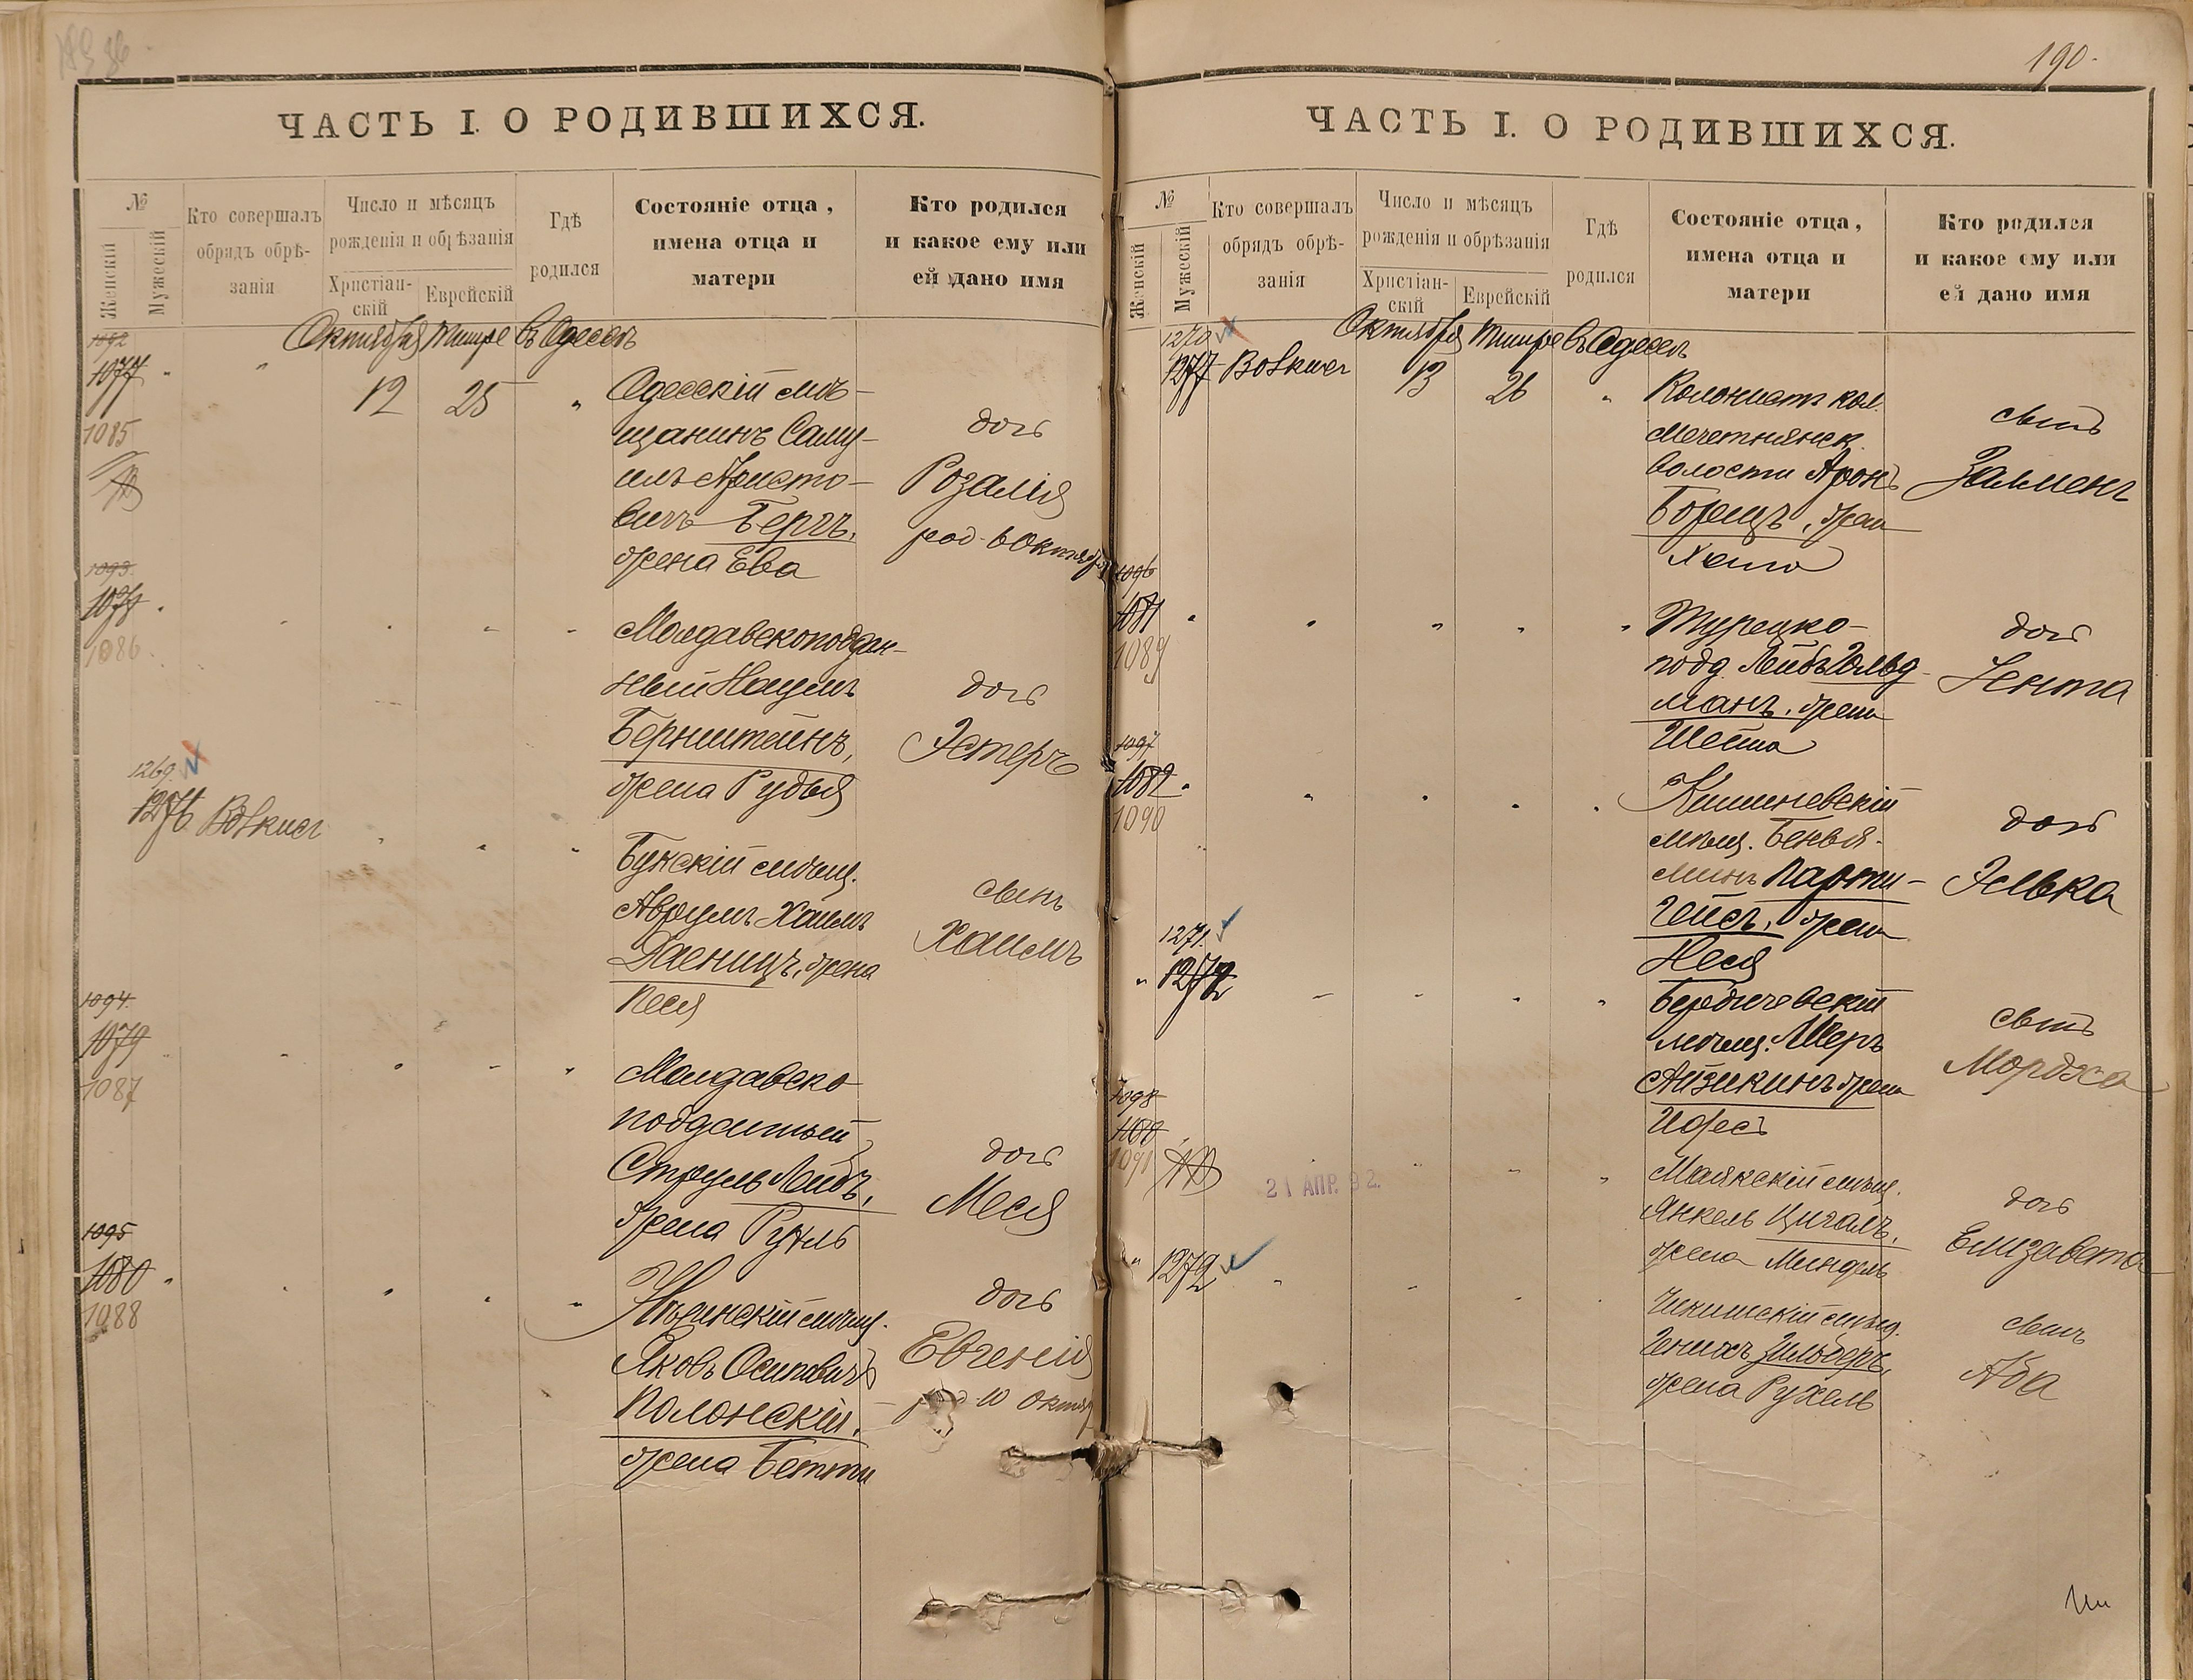 190.
ЧАСТЬ I. О РОДИВШИХСЯ.
№
Женскій
Мужескій
Кто совершалъ
обрядъ обрѣ-
занія
Число и мѣсяцъ
рожденія и обрѣзанія
Христіан-
скій
Еврейскій
Гдѣ
родился
Состояніе отца,
имена отца и
матери
Кто родился
и какое ему или
ей дано имя
1092
Октября Тишре Въ Одессѣ
1077 "
12 25 "
1085
Одесскій мѣ-
щанинъ Саму-
илъ Аристо-
вичъ Бергъ,
жена Ева
дочь
Розалія
род. 6 Октября
1093
1078
1086
Молдавскоподдан-
ный Наумъ
Бернштейнъ,
жена Рудья
дочь
Эстеръ
1269
1276 Вовкисъ
Бунскій мѣщ.
Аврумъ Хаимъ
Жаеницъ, жена
Песя
сынъ
Хаимъ
1094
1079
1087
Молдавско-
подданный
Струль Лейбъ,
жена Рухль
дочь
Меся
1095
1080
1088
Нѣжинскій мѣщ.
Яковъ Осиповичъ
Полонскій,
жена Бетти
дочь
Евгенія
род. 10 Октяб
ЧАСТЬ I. О РОДИВШИХСЯ.
№
Женскій
Мужескій
Кто совершалъ
обрядъ обрѣ-
занія
Число и мѣсяцъ
рожденія и обрѣзанія
Христіан-
скій
Еврейскій
Гдѣ
родился
Состояніе отца,
имена отца и
матери
Кто родился
и какое ему или
ей дано имя
1270
Октября Тишре Въ Одессѣ
1277 Вовкисъ 13 26 "
Колонистъ кол.
Мечетнянск.
волости Аронъ
Борщъ, жена
Хена
сынъ
Залменъ
1096
1081
1089
Турецко-
подд. Лейбъ Гольд-
манъ, жена
Шейна
дочь
Зента
1097
1082
1090
Кишиневскій
мѣщ. Беньа-
минъ Парти-
гейсъ, жена
Неся
дочь
Элька
1271
" 1272
Бердичевскій
мѣщ. Шеръ
Айзикинъ жена
Идесъ
сынъ
Мордхо
1098
1091
21 АПР. 92.
Маякскій мѣщ.
Янкель Цигалъ,
жена Миндль
дочь
Елизавета
" 1272
мѣщ.
Генихъ Зильберъ,
жена Рухель
сынъ
Аба